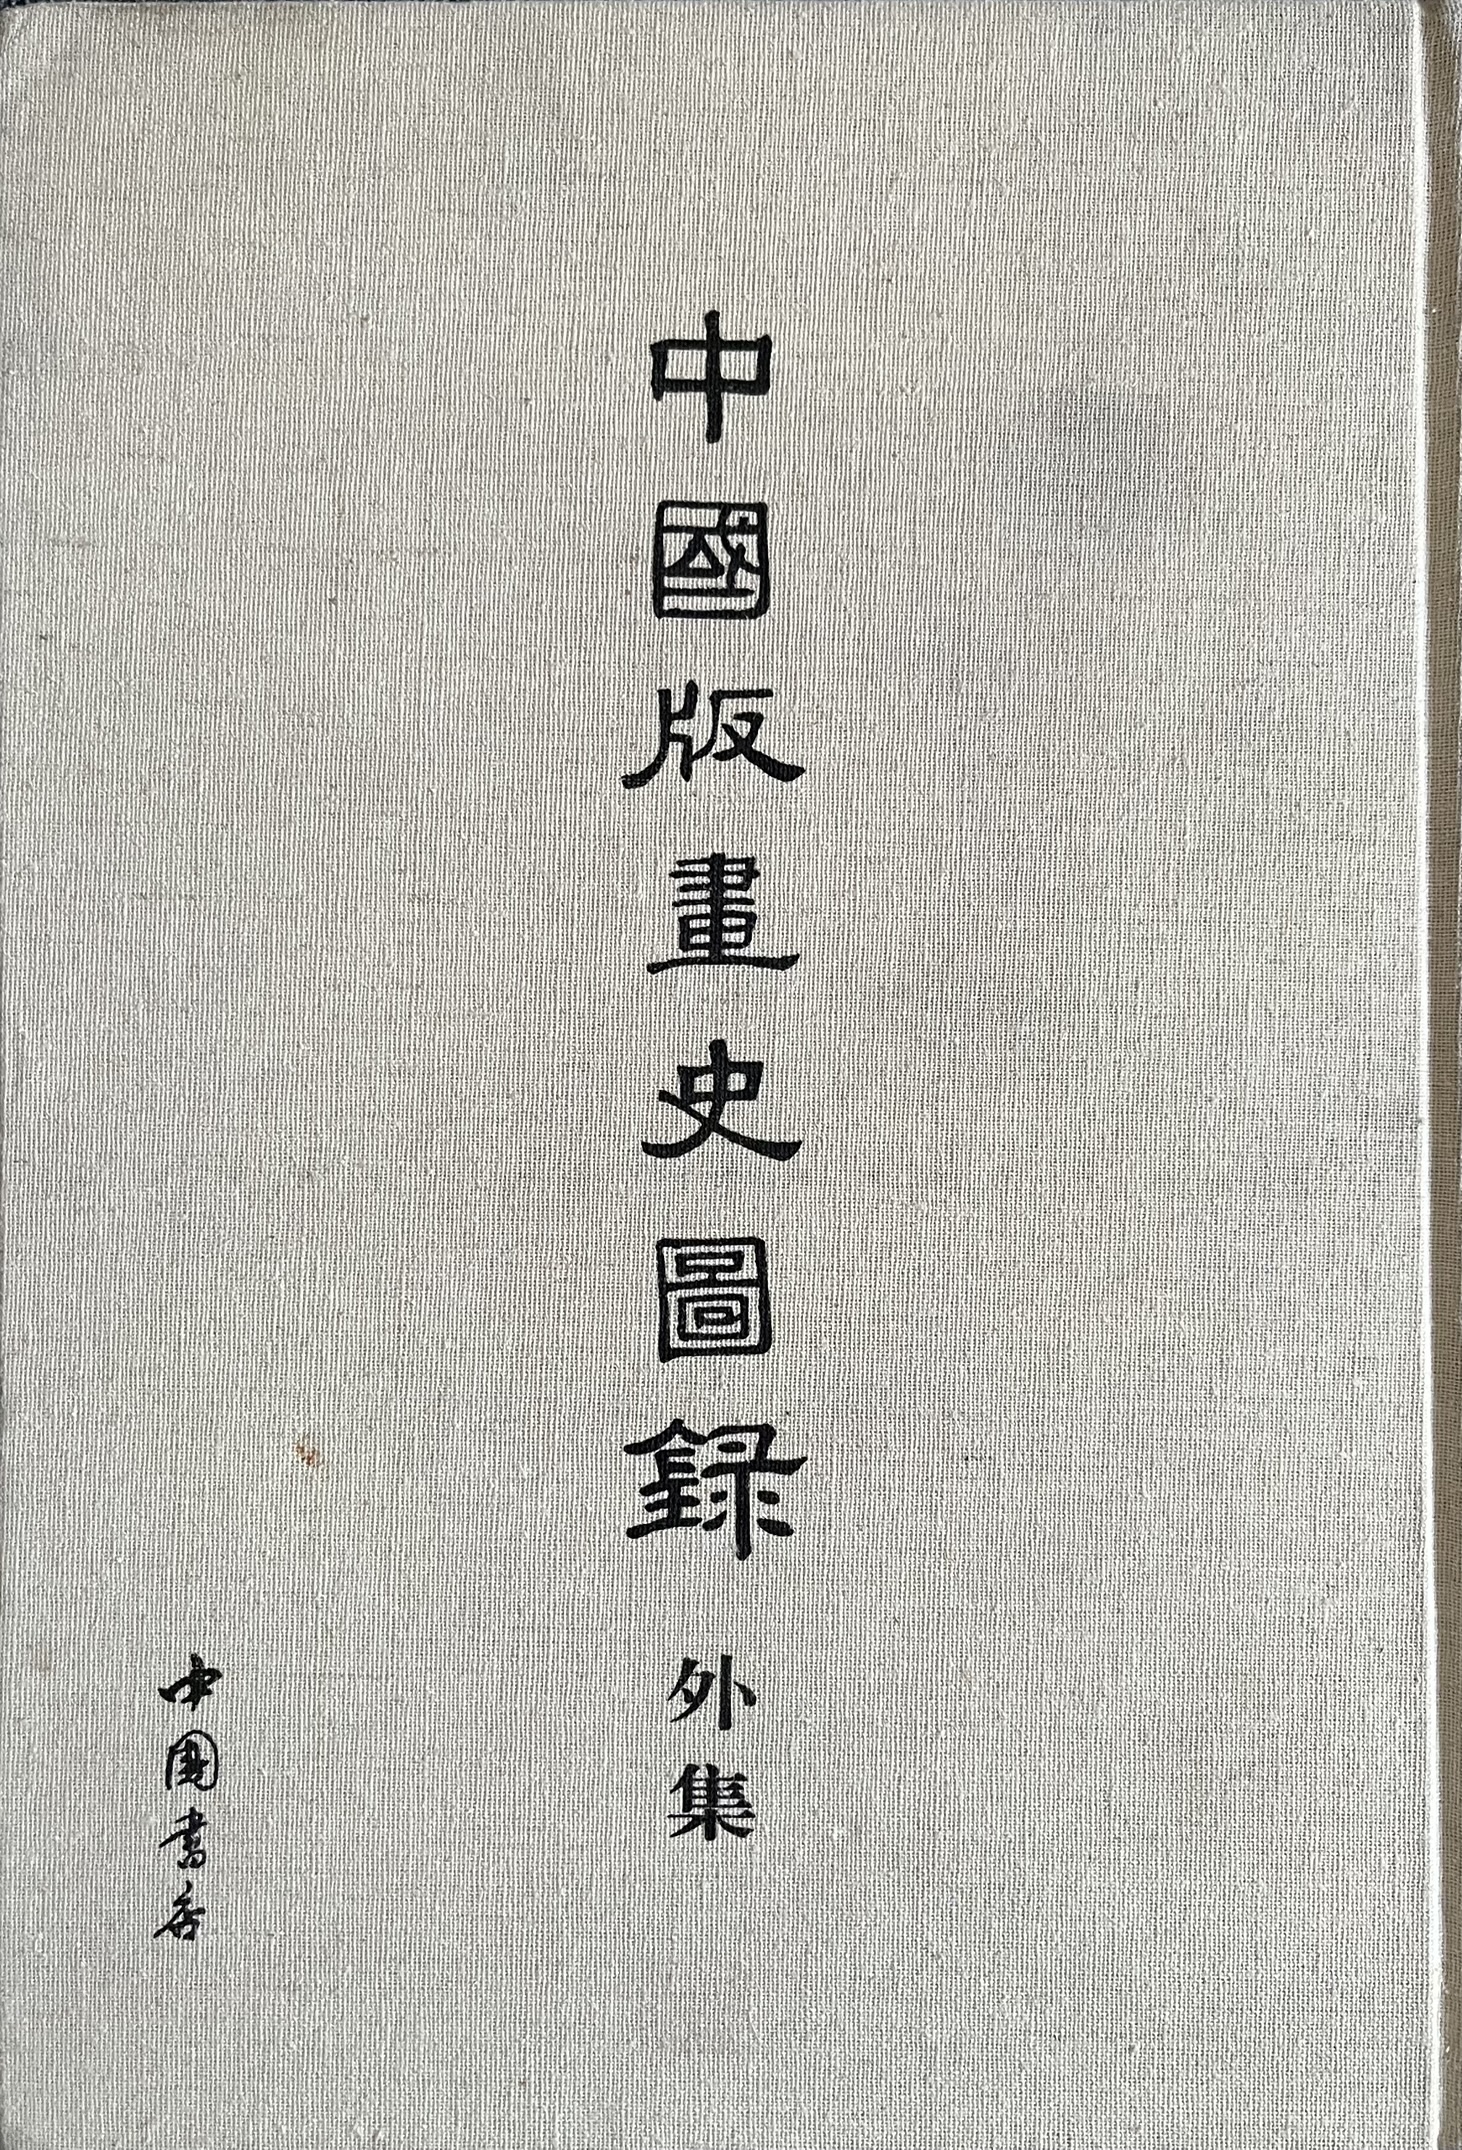 中國版畫史圖錄
外集
中国書店